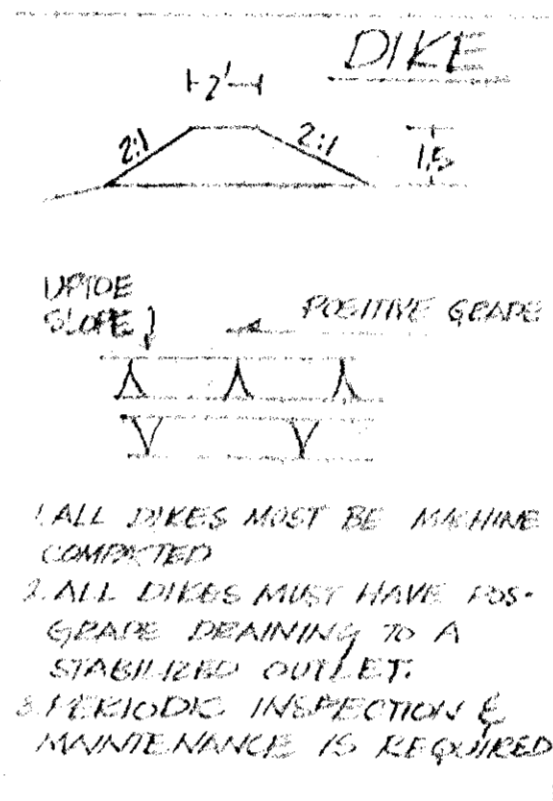 DIKE
2'
2:1
2:1
1.5
UPTOE
SLOPE
POSITIVE GRADE
1. ALL DIKES MUST BE MACHINE
COMPACTED
2. ALL DIKES MUST HAVE POS-
GRADE DRAINING TO A
STABILIZED OUTLET.
3. PERIODIC INSPECTION &
MAINTENANCE IS REQUIRED